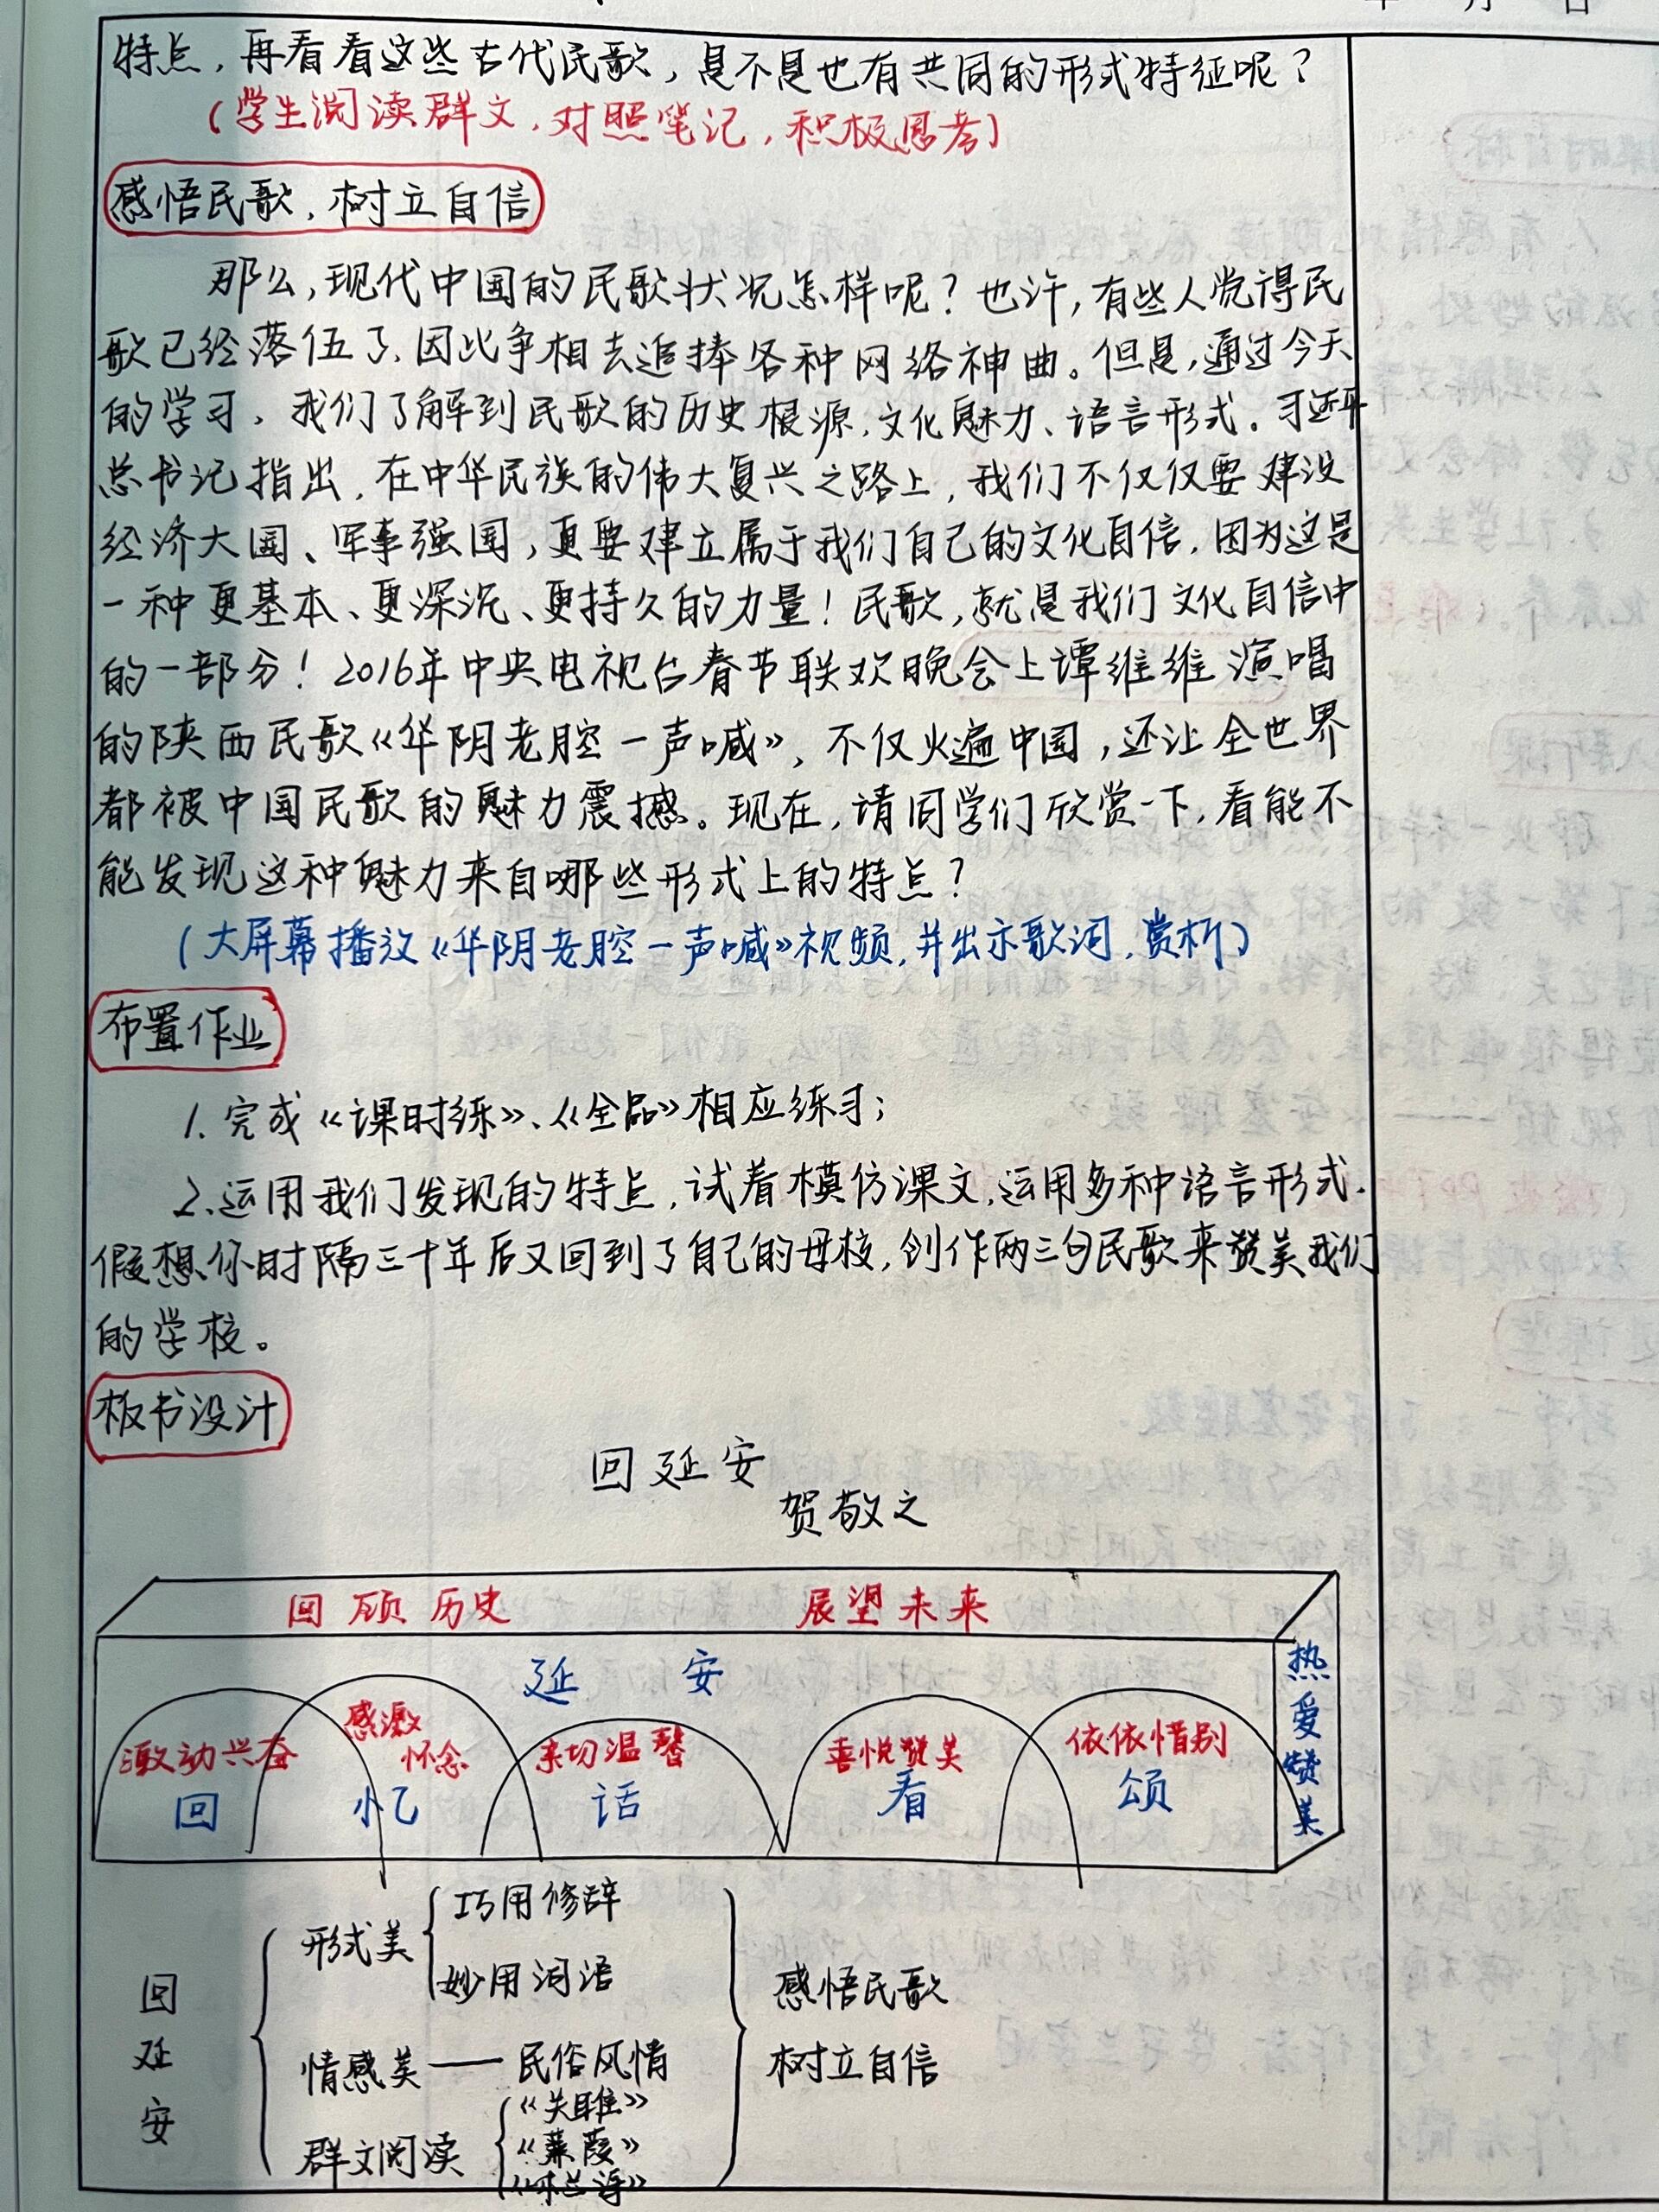 年 月 日
特点，再看看这些古代民歌，是不是也有共同的形式特征呢？
（学生阅读群文，对照笔记，积极思考）
感悟民歌，树立自信
那么，现代中国的民歌状况怎样呢？也许，有些人觉得民
歌已经落伍了，因此争相去追捧各种网络神曲。但是，通过今天
的学习，我们了解到民歌的历史根源、文化魅力、语言形式。习近平
总书记指出，在中华民族的伟大复兴之路上，我们不仅仅要建设
经济大国、军事强国，更要建立属于我们自己的文化自信，因为这是
一种更基本、更深沉、更持久的力量！民歌，就是我们文化自信中
的一部分！2016年中央电视台春节联欢晚会上谭维维演唱
的陕西民歌《华阴老腔一声喊》，不仅火遍中国，还让全世界
都被中国民歌的魅力震撼。现在，请同学们欣赏一下，看能不
能发现这种魅力来自哪些形式上的特点？
（大屏幕播放《华阴老腔一声喊》视频，并出示歌词，赏析）
布置作业
1.完成《课时练》、《全品》相应练习；
2.运用我们发现的特点，试着模仿课文，运用多种语言形式，
假想你时隔三十年后又回到了自己的母校，创作两三句民歌来赞美我们
的学校。
板书设计
回延安
贺敬之
回顾历史 展望未来
延 安
热爱赞美
激动兴奋 感激怀念 亲切温馨 喜悦赞美 依依惜别
回 忆 话 看 颂
回延安
形式美
巧用修辞
妙用词语
情感美——民俗风情
群文阅读
《关雎》
《蒹葭》
《木兰诗》
感悟民歌
树立自信